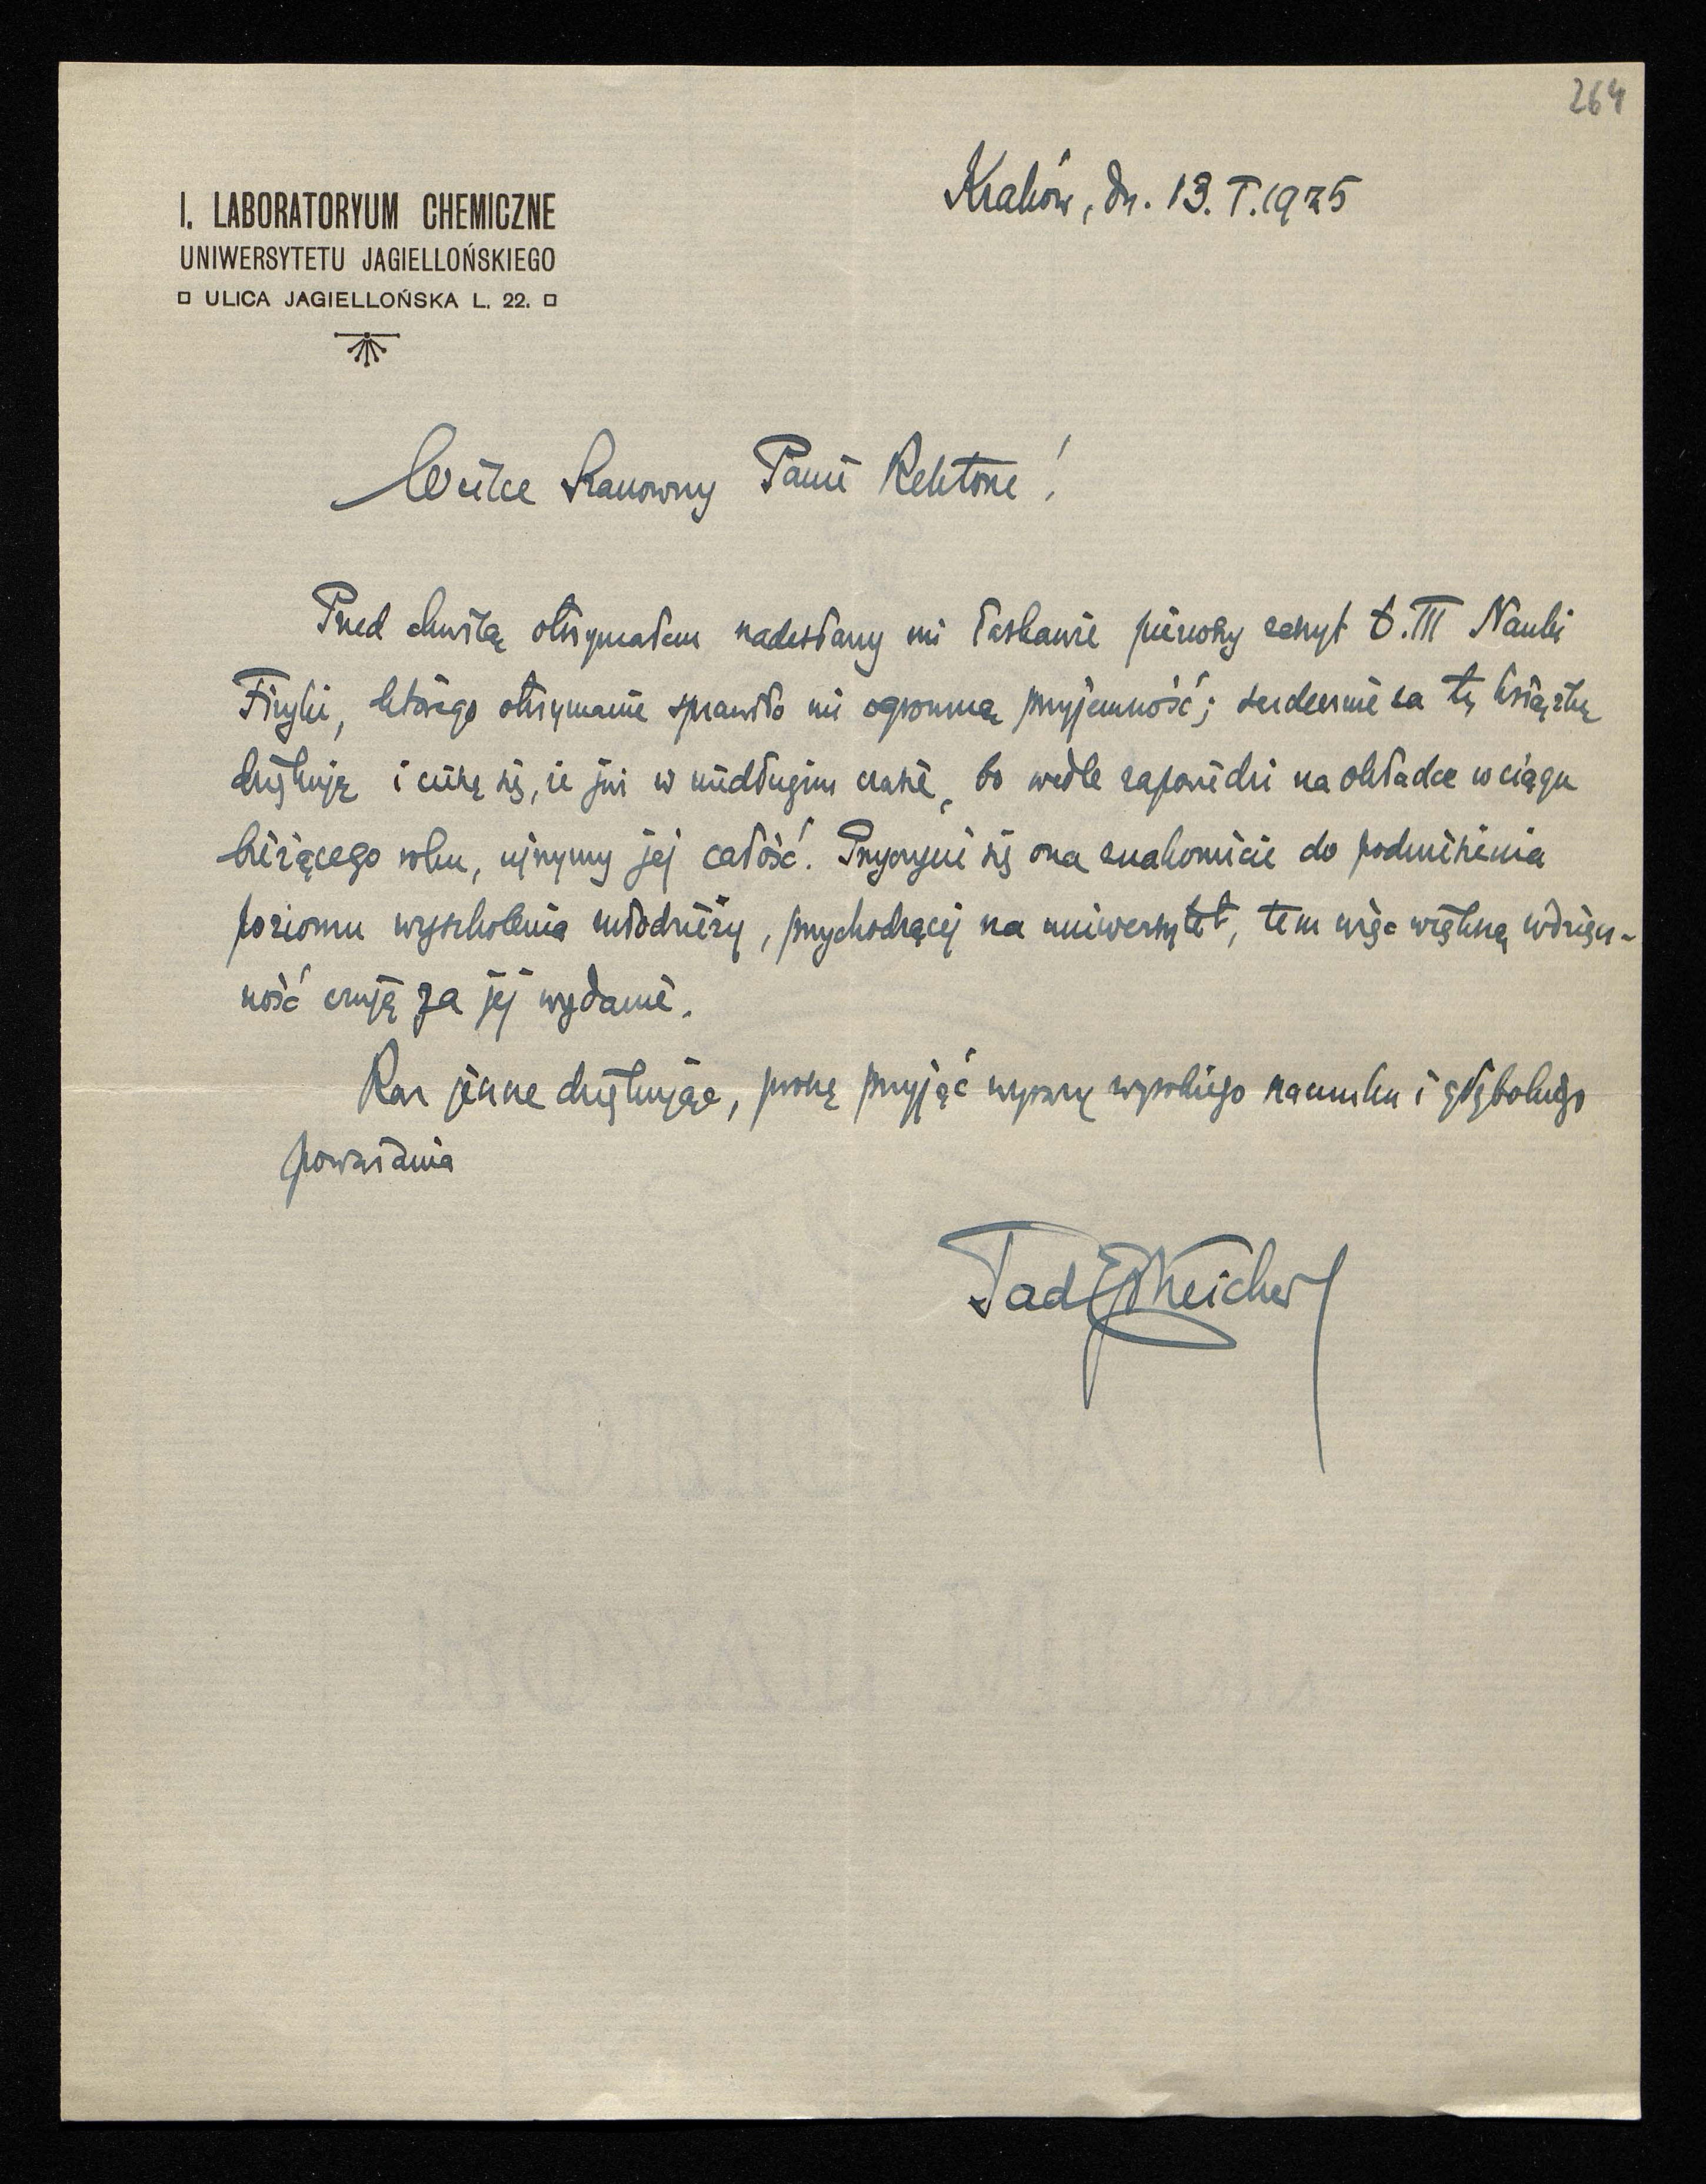 264
Kraków, dn. 13. I. 1925
I. LABORATORYUM CHEMICZNE
UNIWERSYTETU JAGIELLOŃSKIEGO
ULICA JAGIELLOŃSKA L. 22.
Wielce Szanowny Panie Rektorze!
Przed chwilą otrzymałem nadesłany mi łaskawie pierwszy zeszyt t. III Nauki
Fizyki, którego otrzymanie sprawiło mi ogromną przyjemność; serdecznie za tę książkę
dziękuję i cieszę się, że już w niedługim czasie, bo wedle zapowiedzi na okładce w ciągu
bieżącego roku, ujrzymy jej całość. Przyczyni się ona znakomicie do podniesienia
poziomu wyszkolenia młodzieży, przychodzącej na uniwersytet, tem więc większą wdzięcz-
ność czuję za jej wydanie.
Raz jeszcze dziękując, proszę przyjąć wyrazy wysokiego szacunku i głębokiego
poważania
Tad Estreicher